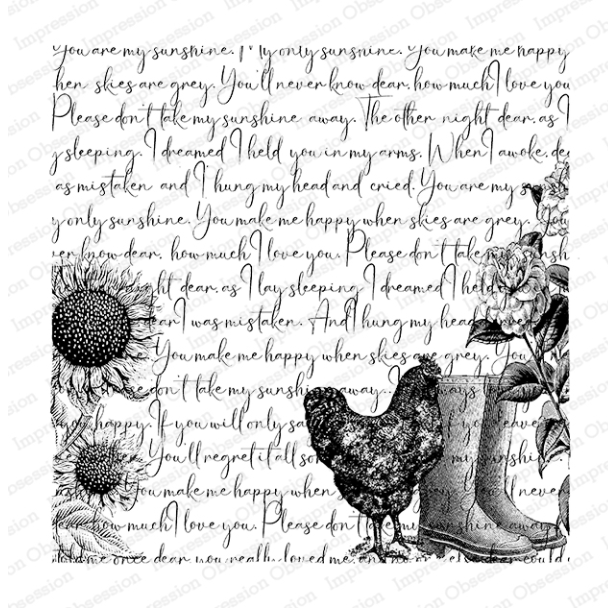 You are my sunshine. My only sunshine. You make me happy
hen skies are grey. You'll never know dear, how much I love you
Please don't take my sunshine away. The other night dear, as I
y sleeping. I dreamed I held you in my arms. When I awoke, de
as mistaken and I hung my head and cried. You are my s
y only sunshine. You make me happy when skies are grey. You
ver know dear, how much I love you. Please don't take my nsh
night dear, as I lay sleeping I dreamed I held
dear I was mistaken. And I hung my head
You make me happy when skies are grey. You
don't take my sunshi away.. ways
you happy. If you will only sa you leave
You'll regret it all so my sunshi
You make me happy when You'll never
ear how much I love you. Please don't take my sunshine away
told me once dear you really loved me and no or else dear could
Impression Obsession